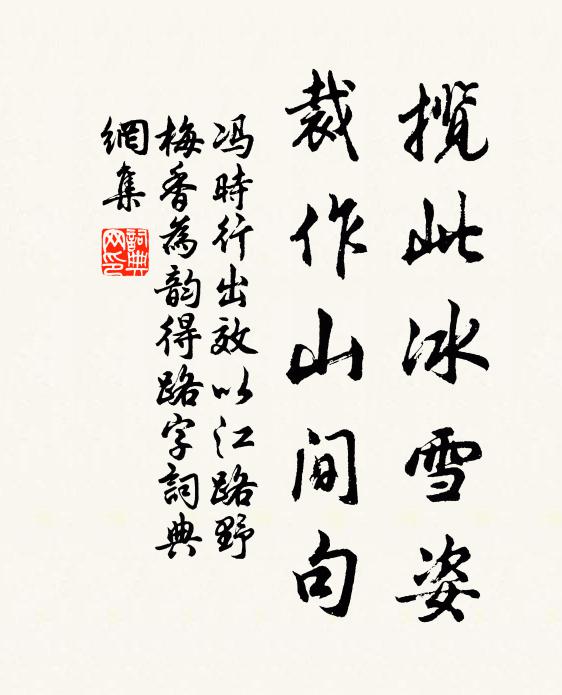 攬此冰雪姿
裁作山間句
馮時行出效以江路野
梅香為韵得路字詞典
網集
詞典
网印